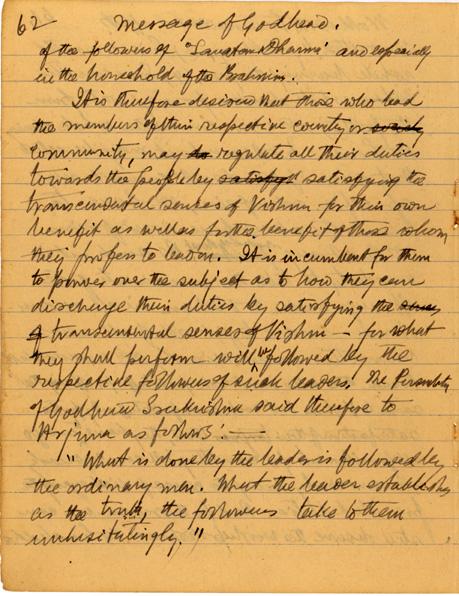 62 Message of Godhead.
of the followers of "Sanatan Dharma" and especially
in the household of the Brahmin.
It is therefore desired that those who lead
the members of their respective country or society
community, may to regulate all their duties
towards the people by satisfy satisfying the
transcendental senses of Vishnu for their own
benefit as well as for the benefit of those whom
they profess to leader. It is incumbent for them
to ponder over the subject as to how they can
discharge their duties by satisfying the
of transcendental senses of Vishnu — for what
they shall perform will be followed by the
respective followers of such leaders. The Personality
of Godhead Srikrishna said therefore to
Arjuna as follows :—
"What is done by the leader is followed by
the ordinary men. What the leader establishes
as the truth, the followers take to them
unhisitatingly."